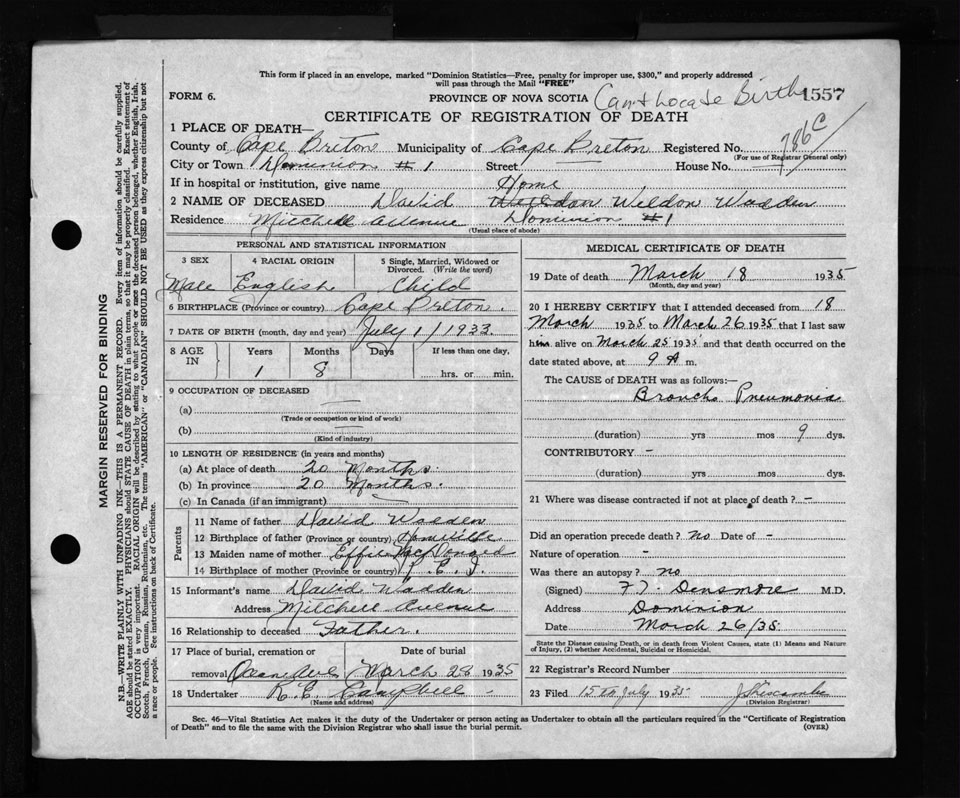 This form if placed in an envelope, marked "Dominion Statistics—Free, penalty for improper use, $300," and properly addressed
will pass through the Mail "FREE"
FORM 6.
PROVINCE OF NOVA SCOTIA
Can't Locate Birth
1557
CERTIFICATE OF REGISTRATION OF DEATH
1 PLACE OF DEATH—
County of Cape Breton Municipality of Cape Breton Registered No. 786c
(For use of Registrar General only)
City or Town Dominion #1 Street House No.
If in hospital or institution, give name Home
2 NAME OF DECEASED David Weldon Wadden
Residence Mitchell Avenue Dominion #1
(Usual place of abode)
PERSONAL AND STATISTICAL INFORMATION
3 SEX
Male
4 RACIAL ORIGIN
English
5 Single, Married, Widowed or
Divorced. (Write the word)
Child
6 BIRTHPLACE (Province or country) Cape Breton.
7 DATE OF BIRTH (month, day and year) July 1/1933.
8 AGE IN
Years Months Days If less than one day,
1 8 hrs. or min.
9 OCCUPATION OF DECEASED
(a)
(Trade or occupation or kind of work)
(b)
(Kind of industry)
10 LENGTH OF RESIDENCE (in years and months)
(a) At place of death 20 Months.
(b) In province 20 Months.
(c) In Canada (if an immigrant)
Parents
11 Name of father David Wadden
12 Birthplace of father (Province or country)
13 Maiden name of mother Effie
14 Birthplace of mother (Province or country) P. E. I.
15 Informant's name David Wadden
Address Mitchell Avenue
16 Relationship to deceased Father.
17 Place of burial, cremation or removal
Date of burial
March 28 1935
18 Undertaker R. E. Campbell
(Name and address)
MEDICAL CERTIFICATE OF DEATH
19 Date of death March 18 1935
(Month, day and year)
20 I HEREBY CERTIFY that I attended deceased from 18
March 1935 to March 26 1935 that I last saw
him alive on March 25 1935 and that death occurred on the
date stated above, at 9 A m.
The CAUSE of DEATH was as follows:—
Broncho Pneumonia
(duration) yrs mos 9 dys.
CONTRIBUTORY –
(duration) yrs mos dys.
21 Where was disease contracted if not at place of death? –
Did an operation precede death? no Date of –
Nature of operation –
Was there an autopsy? no
(Signed) Densmore M.D.
Address Dominion
Date March 26/35
State the Disease causing Death, or in death from Violent Causes, state (1) Means and Nature
of Injury, (2) whether Accidental, Suicidal or Homicidal.
22 Registrar's Record Number
23 Filed 15th July 1935
(Division Registrar)
Sec. 46—Vital Statistics Act makes it the duty of the Undertaker or person acting as Undertaker to obtain all the particulars required in the "Certificate of Registration
of Death" and to file the same with the Division Registrar who shall issue the burial permit.
(OVER)
MARGIN RESERVED FOR BINDING
N.B.—WRITE PLAINLY WITH UNFADING INK—THIS IS A PERMANENT RECORD. Every item of information should be carefully supplied.
AGE should be stated EXACTLY. PHYSICIANS should STATE CAUSE OF DEATH in plain terms, so that it may be properly classified. Exact statement of
OCCUPATION is very important. RACIAL ORIGIN will be described by stating to what people or race the deceased person belonged, whether English, Irish,
Scotch, French, German, Russian, Ruthenian, etc. The terms "AMERICAN" or "CANADIAN" SHOULD NOT BE USED as they express citizenship but not
a race or people. See instructions on back of Certificate.